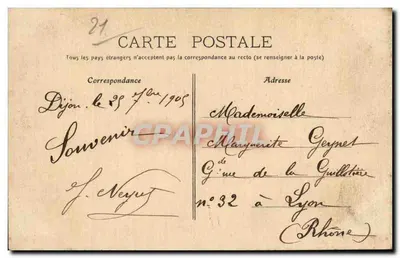 21
CARTE POSTALE
Tous les pays étrangers n'acceptent pas la correspondance au recto (se renseigner à la poste)
Correspondance
Adresse
Dijon le 25 7bre 1905
Souvenir
J. Neyret
Mademoiselle
Marguerite Geynet
Gde rue de la Guillotière
n° 32 à Lyon
(Rhône)
CPARAMA